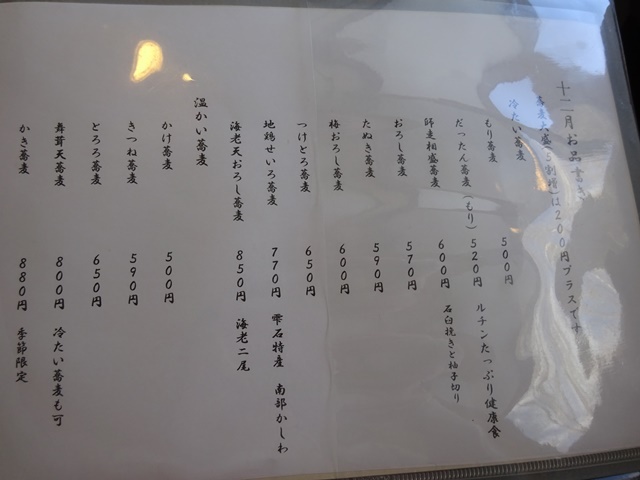 十二月お品書き
蕎麦大盛(5割増)は200円プラスです
冷たい蕎麦
もり蕎麦 500円
だったん蕎麦(もり) 520円 ルチンたっぷり健康食
師走相盛蕎麦 600円 石臼挽きと柚子切り
おろし蕎麦 570円
たぬき蕎麦 590円
梅おろし蕎麦 600円
つけとろ蕎麦 650円
地鶏せいろ蕎麦 770円 雫石特産 南部かしわ
海老天おろし蕎麦 850円 海老二尾
温かい蕎麦
かけ蕎麦 500円
きつね蕎麦 590円
とろろ蕎麦 650円
舞茸天蕎麦 800円 冷たい蕎麦も可
かき蕎麦 880円 季節限定